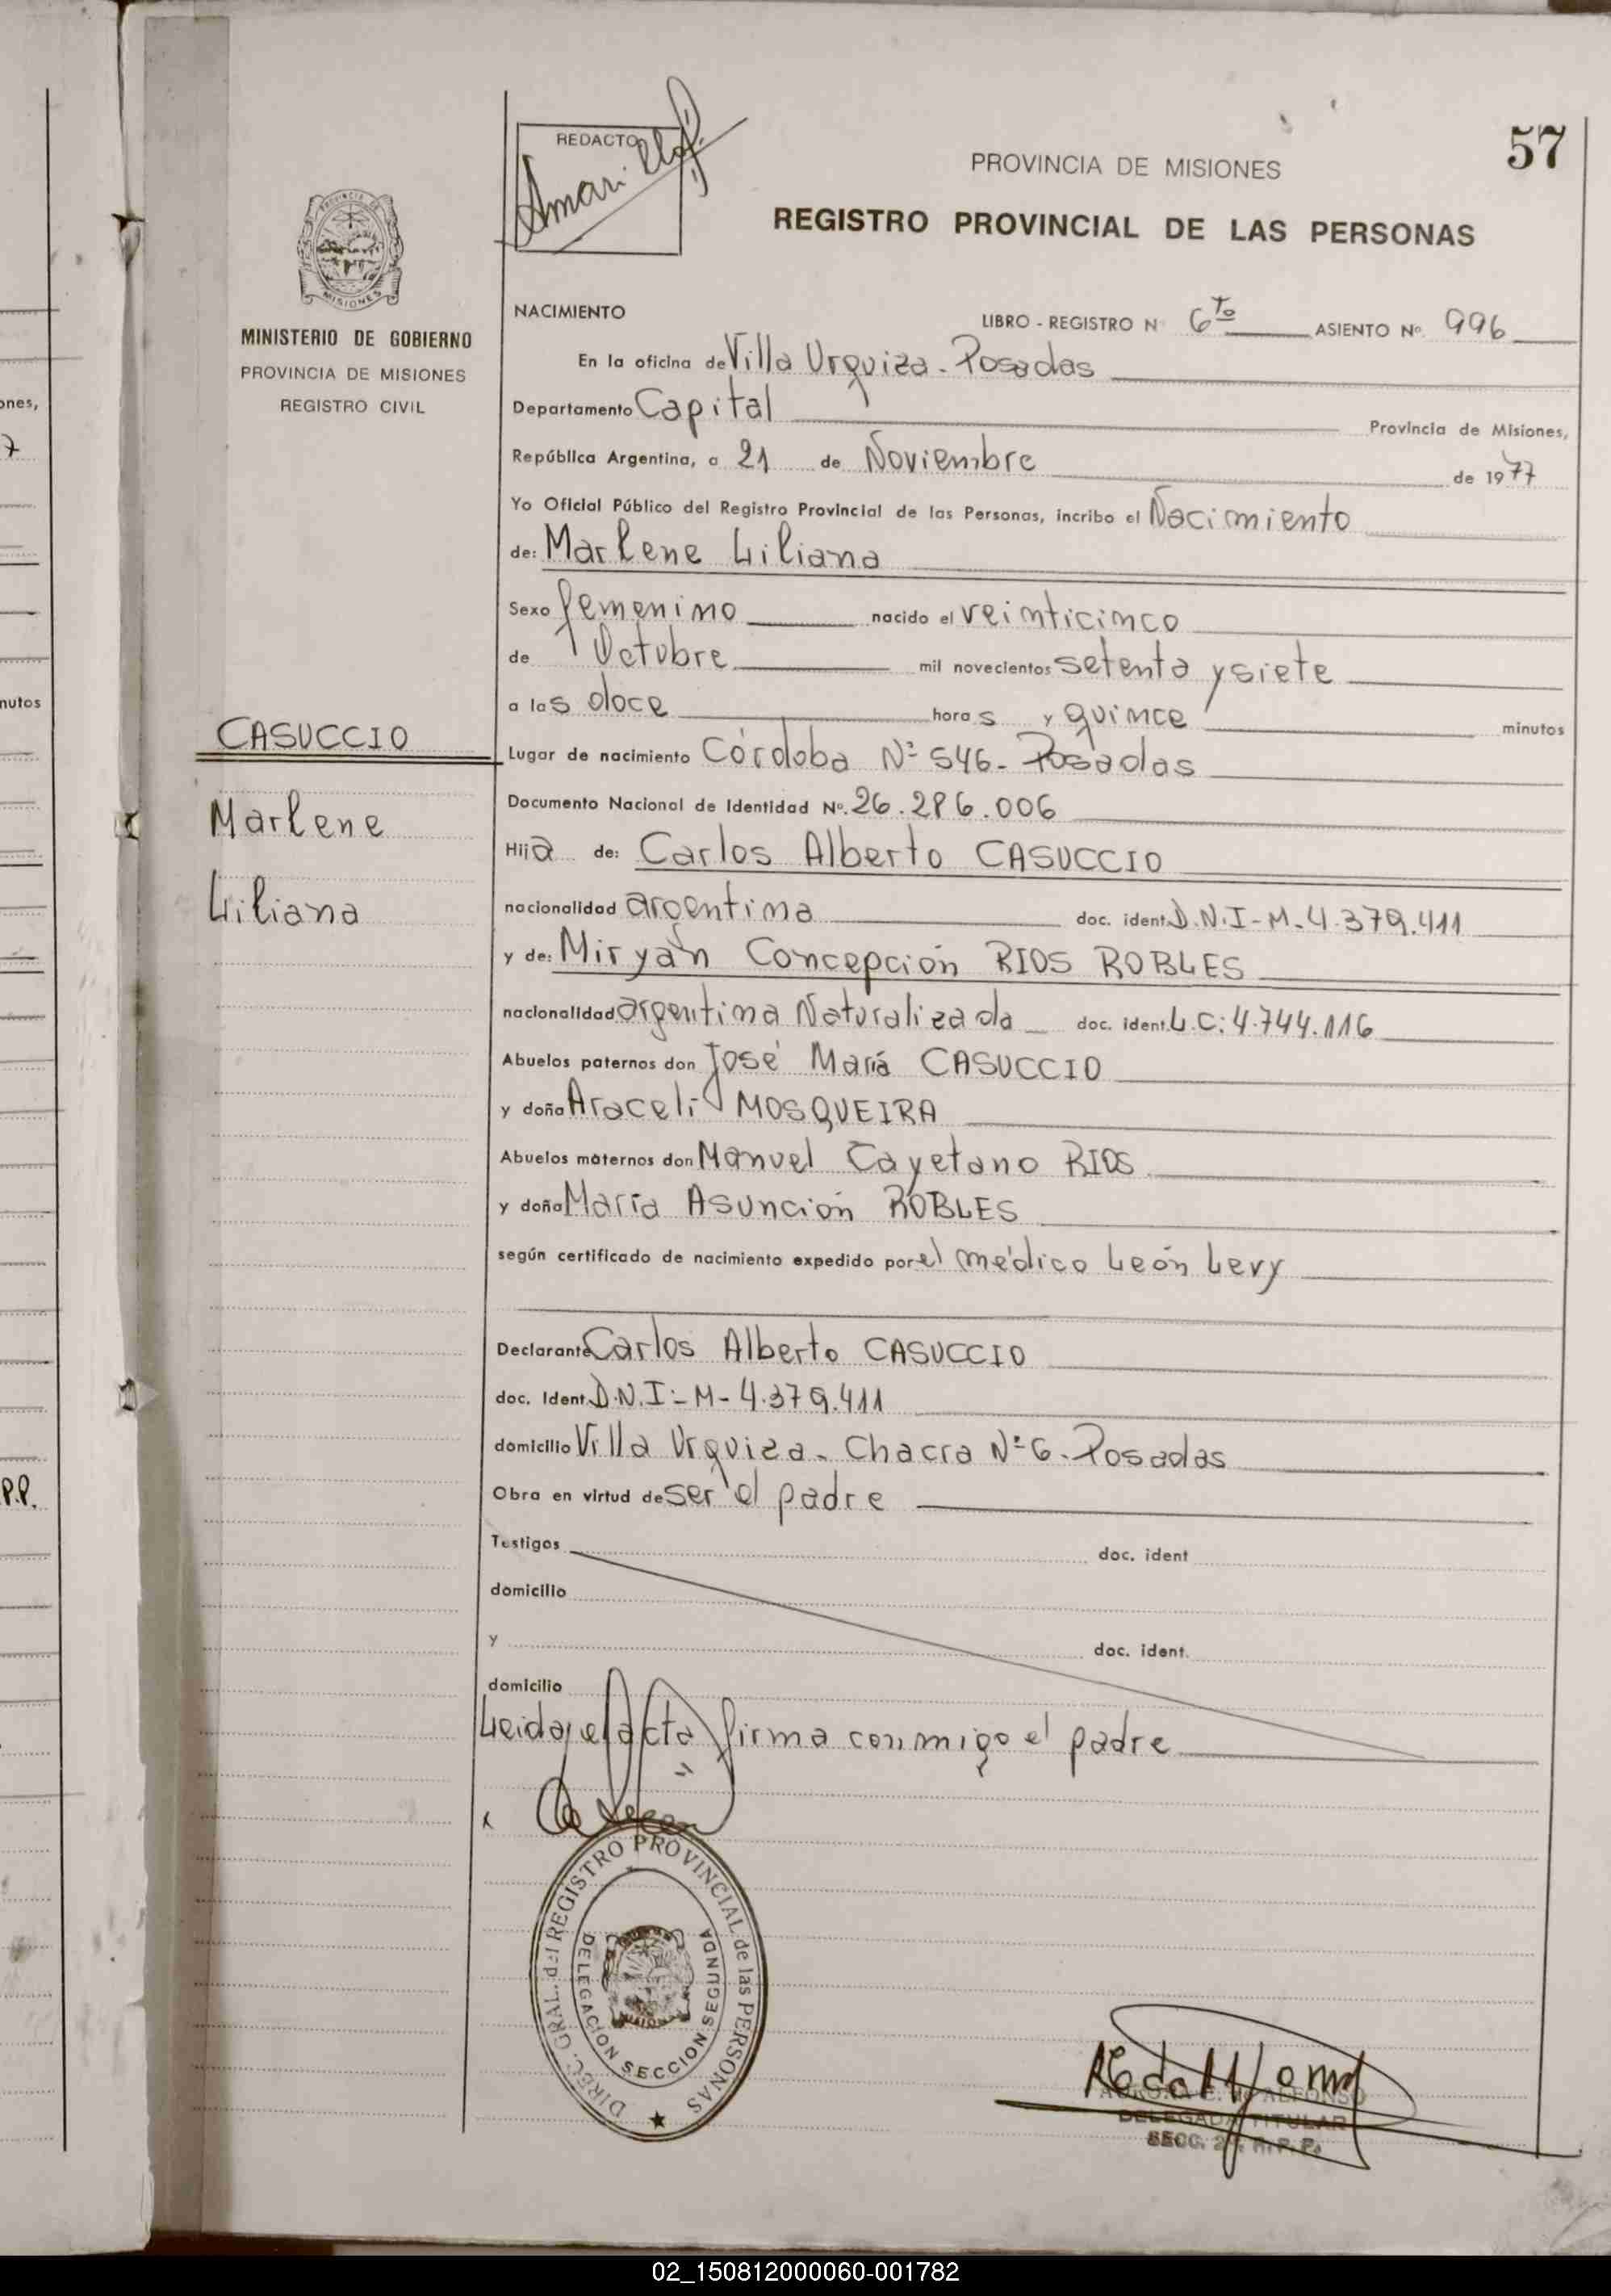 57
REDACTO
Amarilla
PROVINCIA DE MISIONES
REGISTRO PROVINCIAL DE LAS PERSONAS
PROVINCIA DE
MISIONES
MINISTERIO DE GOBIERNO
PROVINCIA DE MISIONES
REGISTRO CIVIL
NACIMIENTO
LIBRO - REGISTRO Nº 6to ASIENTO Nº. 996
En la oficina de Villa Urquiza - Posadas
Departamento Capital Provincia de Misiones,
República Argentina, a 21 de Noviembre de 1977
Yo Oficial Público del Registro Provincial de las Personas, incribo el Nacimiento
de: Marlene Liliana
Sexo femenino nacido el veinticinco
de Octubre mil novecientos setenta y siete
a las doce horas y quince minutos
CASUCCIO
Marlene
Liliana
Lugar de nacimiento Córdoba Nº 546 - Posadas
Documento Nacional de Identidad Nº. 26.286.006
Hija de: Carlos Alberto CASUCCIO
nacionalidad argentina doc. ident. D.N.I - M - 4.379.411
y de: Miryan Concepción RIOS ROBLES
nacionalidad argentina Naturalizada doc. ident. L.C: 4.744.116
Abuelos paternos don José María CASUCCIO
y doña Araceli MOSQUEIRA
Abuelos maternos don Manuel Cayetano RIOS
y doña María Asunción ROBLES
según certificado de nacimiento expedido por el médico León Levy
Declarante Carlos Alberto CASUCCIO
doc. Ident. D.N.I - M - 4.379.411
domicilio Villa Urquiza - Chacra Nº 6 - Posadas
Obra en virtud de ser el padre
Testigos doc. ident
domicilio
y doc. ident.
domicilio
Leida el acta firma conmigo el padre
x
DIREC. GRAL. del REGISTRO PROVINCIAL de las PERSONAS
DELEGACION SECCION SEGUNDA
DELEGADA TITULAR
SECC. 2ª. R. P. P.
ones,
7
nutos
P.P.
02_150812000060-001782